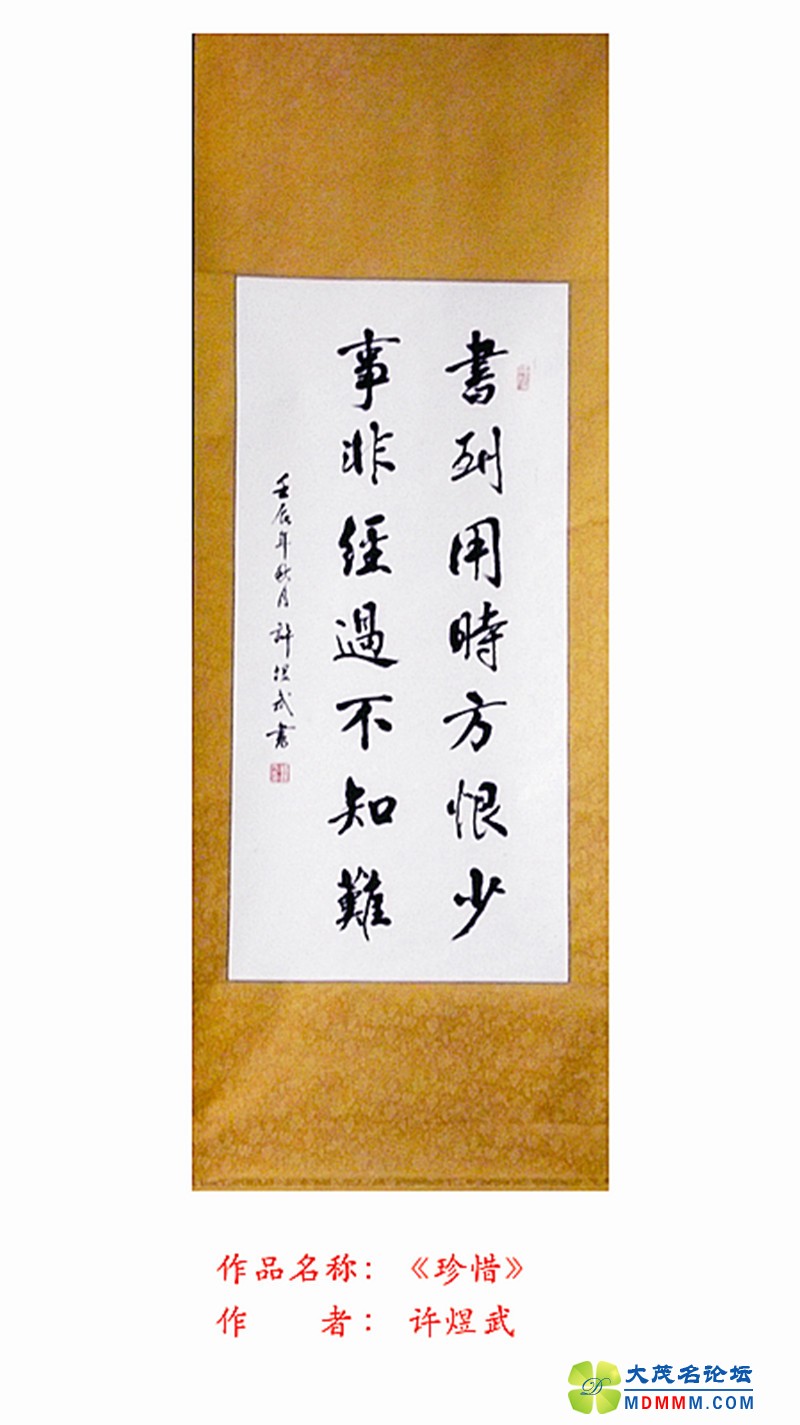 書到用時方恨少
事非經過不知難
壬辰年秋月許煜武書
作品名称：《珍惜》
作 者：许煜武
大茂名论坛
MDMMM.COM